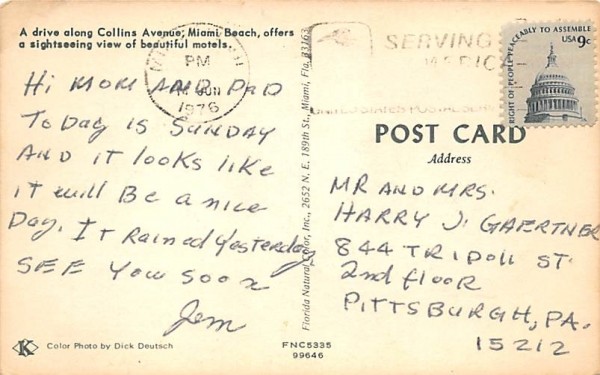 A drive along Collins Avenue, Miami Beach, offers
a sightseeing view of beautiful motels.
PM
JUN
1976
SERVING
UNITED STATES POSTAL
RIGHT OF PEOPLE PEACEABLY TO ASSEMBLE
USA 9c
Hi MOM AND DAD
ToDay is SUNDAY
AND it looks like
it will Be a nice
Day. It Rained Yesterday
SEE You soon
Jem
Florida Natural Color, Inc., 2652 N. E. 189th St., Miami, Fla. 33163
POST CARD
Address
MR AND MRS.
HARRY J. GAERTNER
844 TRIPOLI ST.
2nd floor
PITTSBURGH, PA.
15212
K
Color Photo by Dick Deutsch
FNC5335
99646